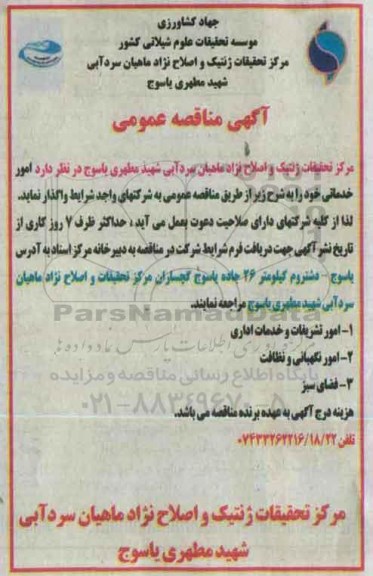 جهاد کشاورزی
موسسه تحقیقات علوم شیلاتی کشور
مرکز تحقیقات ژنتیک و اصلاح نژاد ماهیان سردآبی
شهید مطهری یاسوج
آگهی مناقصه عمومی
مرکز تحقیقات ژنتیک و اصلاح نژاد ماهیان سردآبی شهید مطهری یاسوج در نظر دارد امور
خدماتی خود را به شرح زیر از طریق مناقصه عمومی به شرکتهای واجد شرایط واگذار نماید.
لذا از کلیه شرکتهای دارای صلاحیت دعوت بعمل می آید ، حداکثر ظرف ۷ روز کاری از
تاریخ نشر آگهی جهت دریافت فرم شرایط شرکت در مناقصه به دبیرخانه مرکز اسناد به آدرس
یاسوج - دشتروم کیلومتر ۲۶ جاده یاسوج گچساران مرکز تحقیقات و اصلاح نژاد ماهیان
سردآبی شهید مطهری یاسوج مراجعه نمایند.
ParsNamadData
۱- امور تشریفات و خدمات اداری
۲- امور نگهبانی و نظافت
پایگاه اطلاع رسانی مناقصه و مزایده
۳- فضای سبز
۰۲۱-۸۸۳۴۹۶۷۰-۵
هزینه درج آگهی به عهده برنده مناقصه می باشد.
تلفن ۰۷۴۳۳۲۶۲۲۱۶/۱۸/۲۲
مرکز تحقیقات ژنتیک و اصلاح نژاد ماهیان سردآبی
شهید مطهری یاسوج